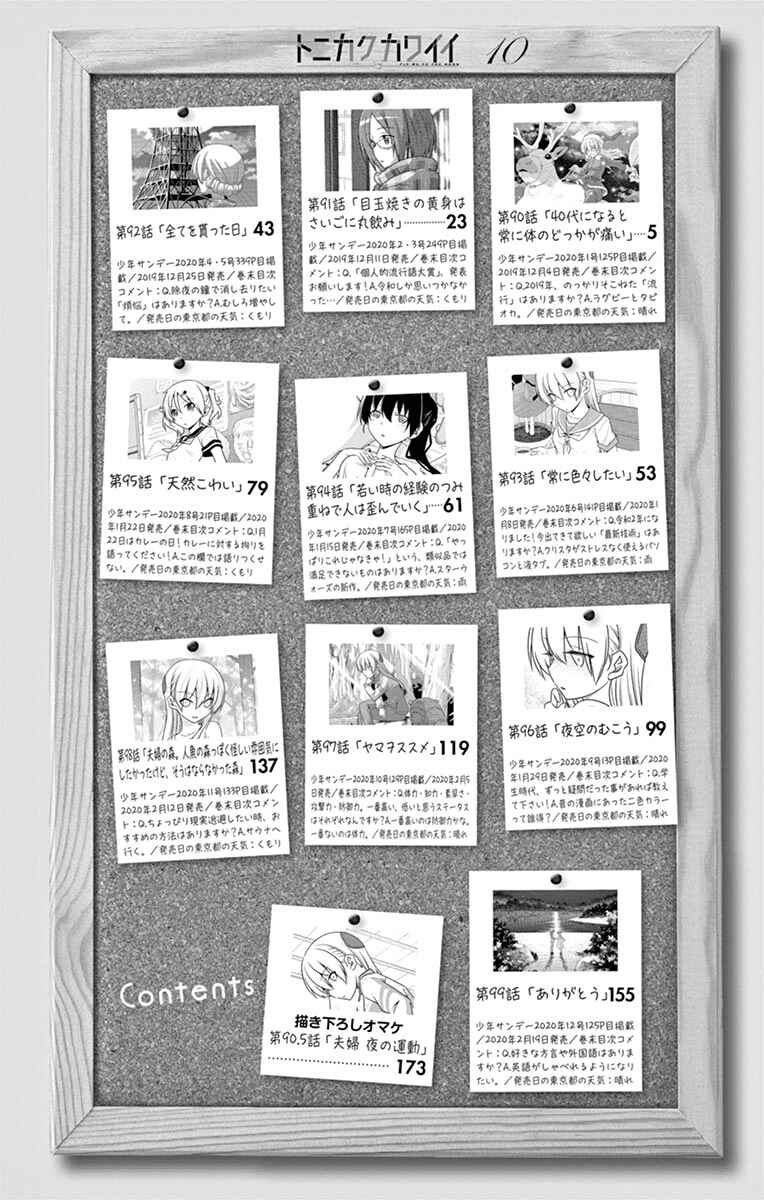 トニカクカワイイ 10
FLY ME TO THE MOON
第90話「40代になると
常に体のどっかが痛い」‥‥5
少年サンデー2020年1号125P目掲
載／2019年12月4日発売／巻末目次
コメント：Q.2019年、のっかりそこねた「流
行」はありますか？A.ラグビーとタピ
オカ。／発売日の東京都の天気：晴れ
第91話「目玉焼きの黄身は
さいごに丸飲み」‥‥‥‥‥23
少年サンデー2020年2・3号249P目掲
載／2019年12月11日発売／巻末目次
コメント：Q.「個人的流行語大賞」、発表
お願いします！A.令和しか思いつかなか
った…／発売日の東京都の天気：くもり
第92話「全てを貰った日」43
少年サンデー2020年4・5号339P目掲
載／2019年12月25日発売／巻末目次
コメント：Q.除夜の鐘で消し去りたい
「煩悩」はありますか？A.むしろ増やし
て。／発売日の東京都の天気：くもり
第93話「常に色々したい」53
少年サンデー2020年6号141P目掲載／2020年1
月8日発売／巻末目次コメント：Q.令和2年にな
りました！今出てきて欲しい「最新技術」はあ
りますか？A.クリスタがストレスなく使えるパソ
コンと液タブ。／発売日の東京都の天気：雨
第94話「若い時の経験のつみ
重ねで人は歪んでいく」‥‥‥61
少年サンデー2020年7号165P目掲載／2020
年1月15日発売／巻末目次コメント：Q.「やっ
ぱりこれじゃなきゃ！」という、類似品では
満足できないものはありますか？A.スターウ
ォーズの新作。／発売日の東京都の天気：雨
第95話「天然こわい」79
少年サンデー2020年8号21P目掲載／2020
年1月22日発売／巻末目次コメント：Q.1月
22日はカレーの日！カレーに対する拘りを
語ってください！A.この欄では語りつくせ
ない。／発売日の東京都の天気：くもり
第96話「夜空のむこう」99
少年サンデー2020年9号13P目掲載／2020
年1月29日発売／巻末目次コメント：Q.学
生時代、ずっと疑問だった事があれば教え
て下さい！A.昔の漫画にあった二色カラー
って誰得？／発売日の東京都の天気：晴れ
第97話「ヤマヲススメ」119
少年サンデー2020年10号129P目掲載／2020年2月5
日発売／巻末目次コメント：Q.体力・知力・素早さ・
攻撃力・防御力。一番高い、低いと思うステータス
はそれぞれなんですか？A.一番高いのは防御力かな。
一番ないのは体力。／発売日の東京都の天気：晴れ
第98話「夫婦の森。人魚の森っぽく怪しい雰囲気に
したかったけど、そうはならなかった森」137
少年サンデー2020年11号133P目掲載／
2020年2月12日発売／巻末目次コメン
ト：Q.ちょっぴり現実逃避したい時、お
すすめの方法はありますか？A.サウナへ
行く。／発売日の東京都の天気：くもり
第99話「ありがとう」155
少年サンデー2020年12号125P目掲載
／2020年2月19日発売／巻末目次コメ
ント：Q.好きな方言や外国語はありま
すか？A.英語がしゃべれるようになり
たい。／発売日の東京都の天気：晴れ
描き下ろしオマケ
第90.5話「夫婦 夜の運動」
‥‥‥‥‥‥‥‥‥‥173
Contents